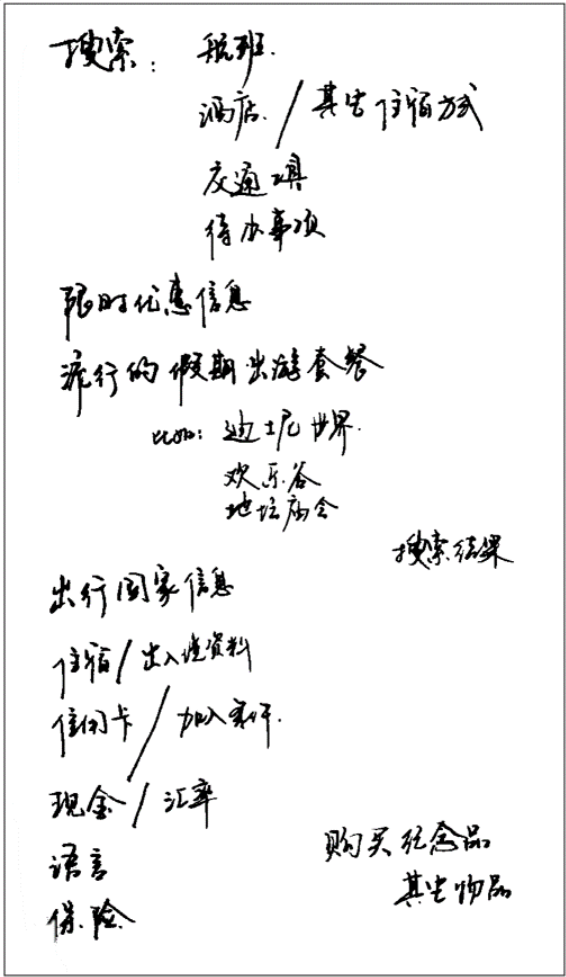 搜索： 航班.
酒店. / 其它住宿方式
交通工具
待办事项
限时优惠信息
流行的假期出游套餐
比如: 迪士尼世界.
欢乐谷
地坛庙会
搜索结果
出行国家信息
住宿 / 出入境资料
信用卡 / 加入
现金 / 汇率
语言
保险
购买纪念品
其它物品